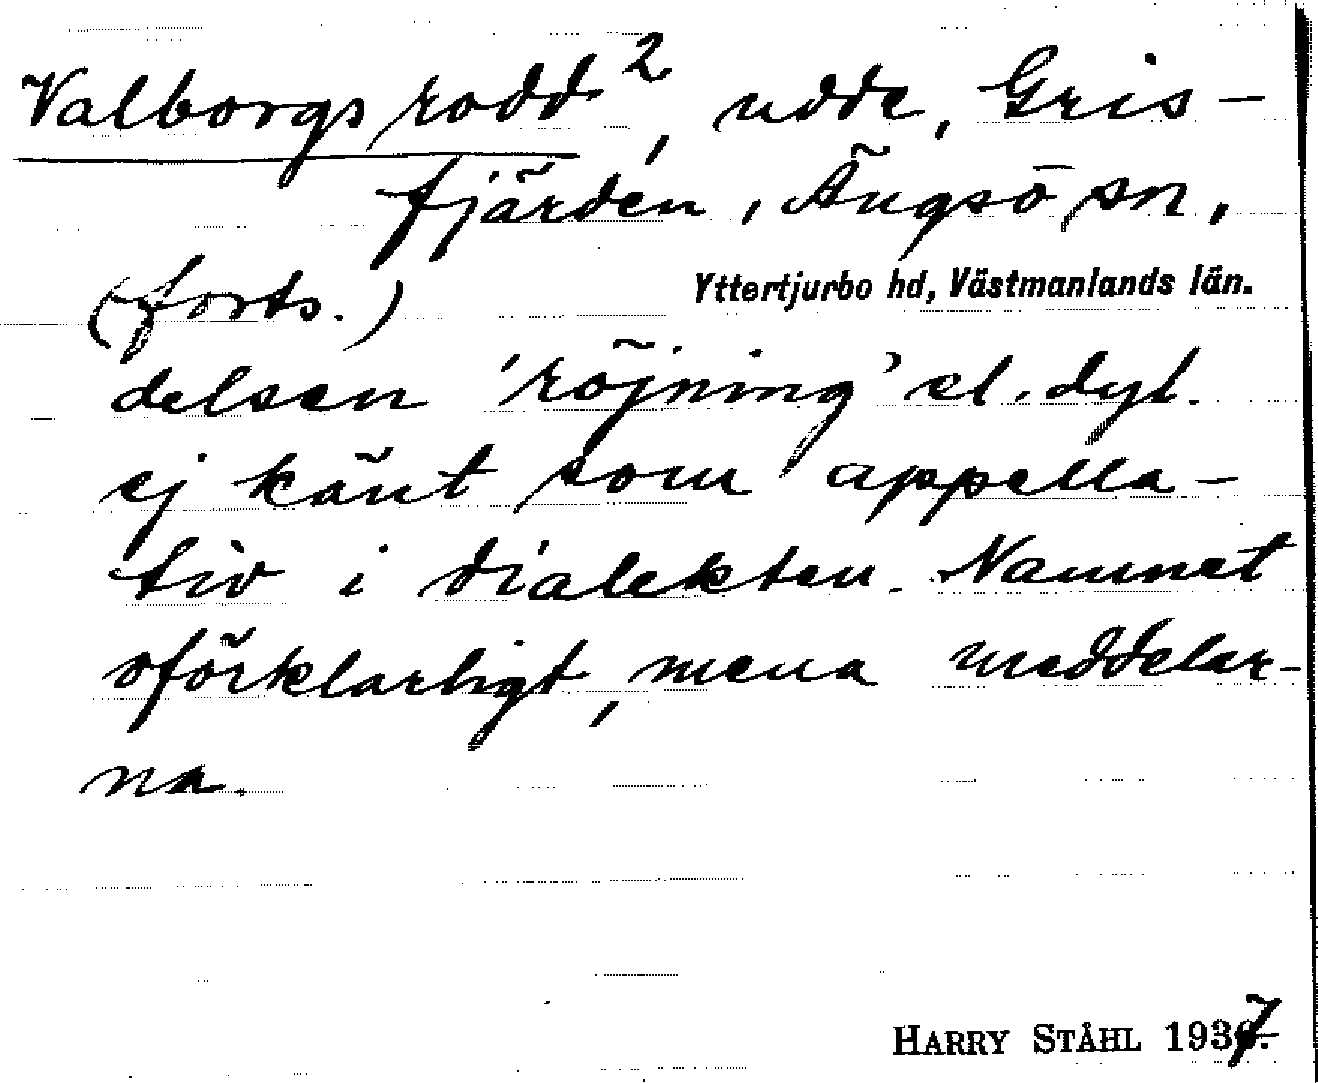 Valborgs rodd 2, udde, Gris-
fjärden, Ängsö sn,
(forts.)
Yttertjurbo hd, Västmanlands län.
delsen 'röjning' el. dyl.
ej känt som appella-
tiv i dialekten. Namnet
oförklarligt, mena meddelar-
na.
HARRY STÅHL 1937.